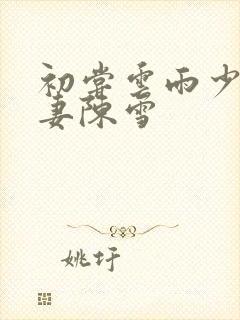 初尝雲雨少
妻陳雪
姚圩